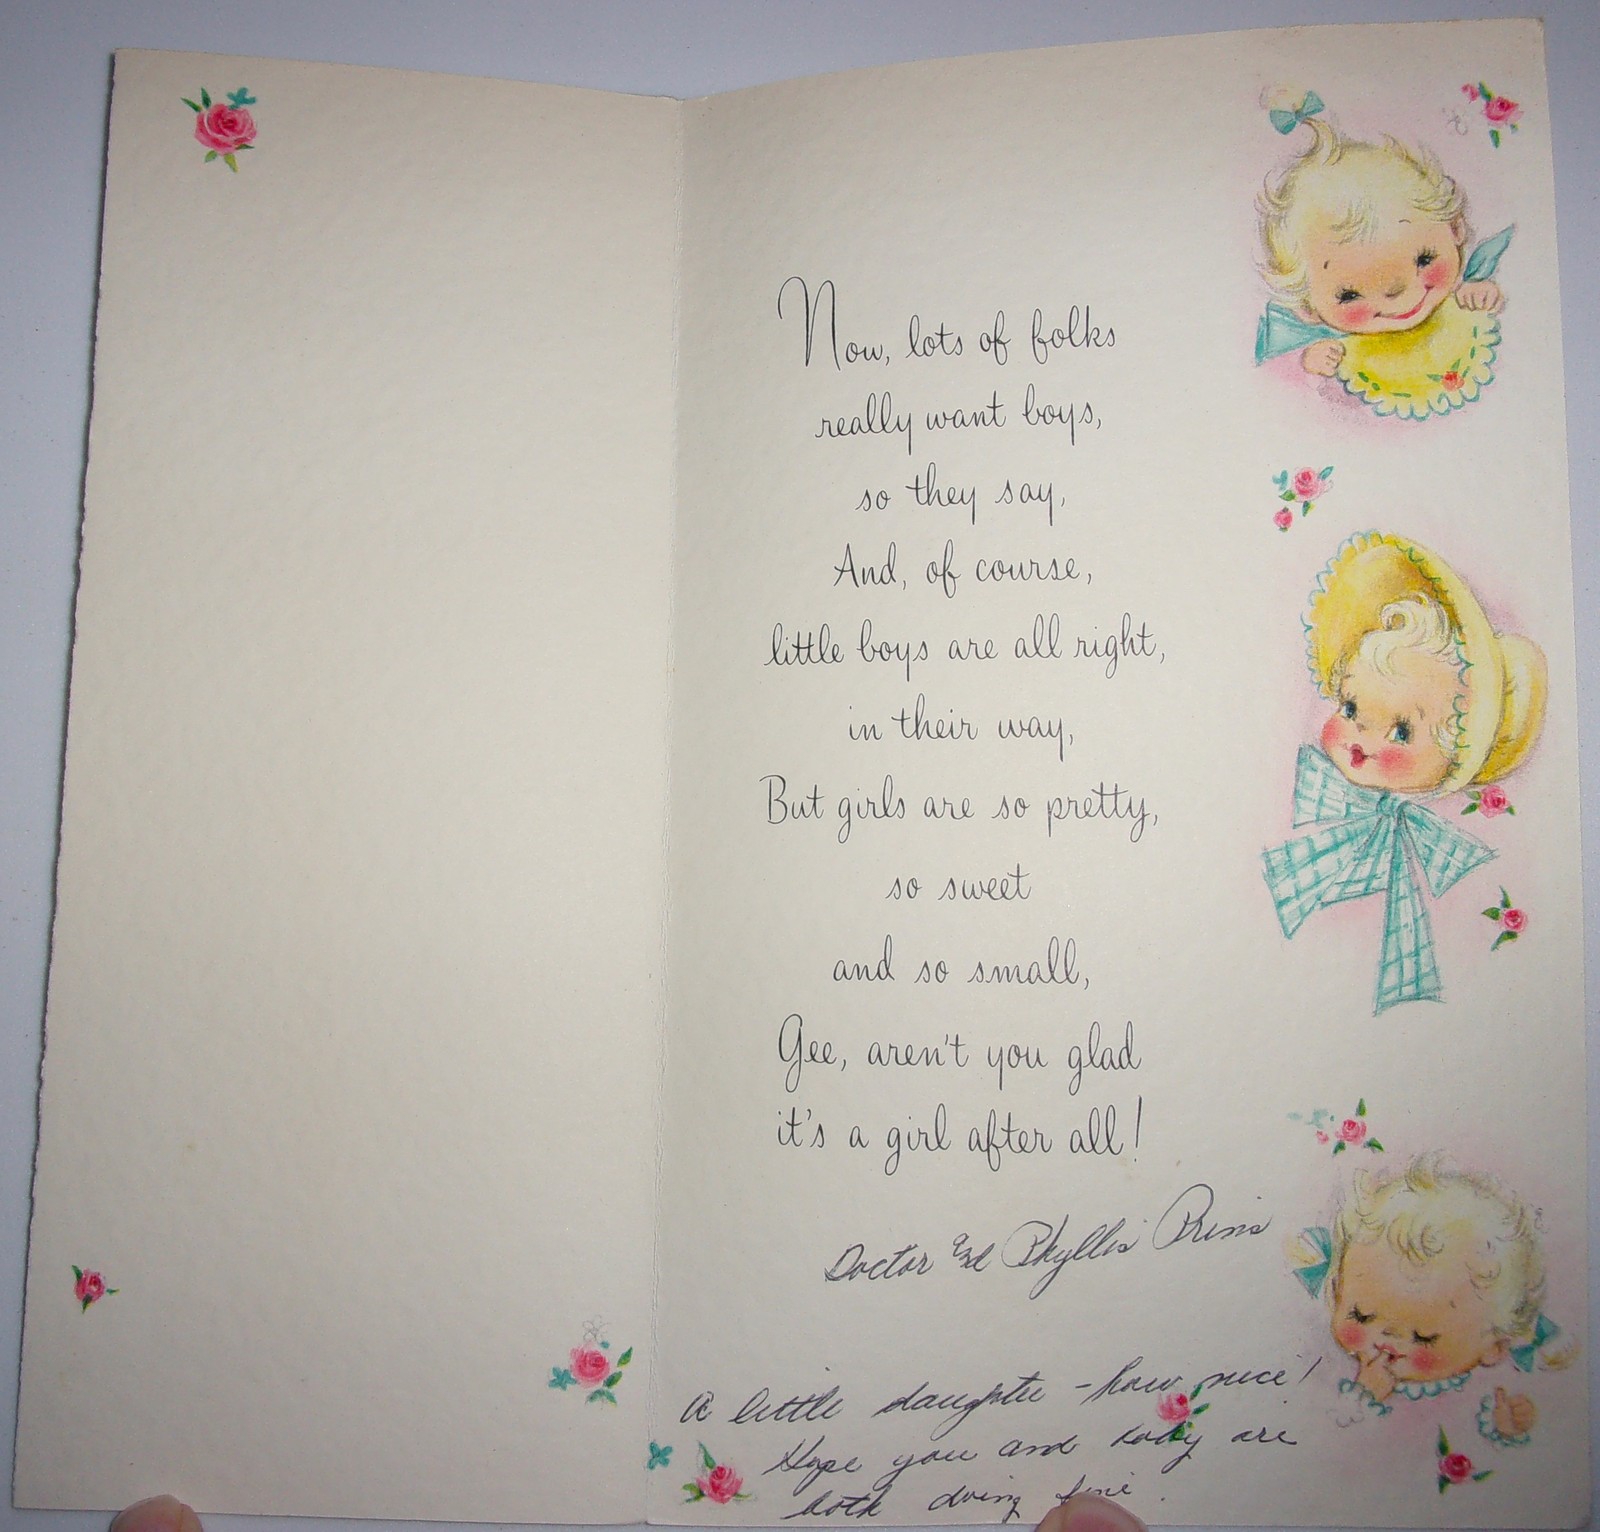 Now, lots of folks
really want boys,
so they say,
And, of course,
little boys are all right,
in their way,
But girls are so pretty,
so sweet
and so small,
Gee, aren't you glad
it's a girl after all!
Doctor and Phyllis Prins
A little daughter - how nice!
Hope you and baby are
both doing fine.